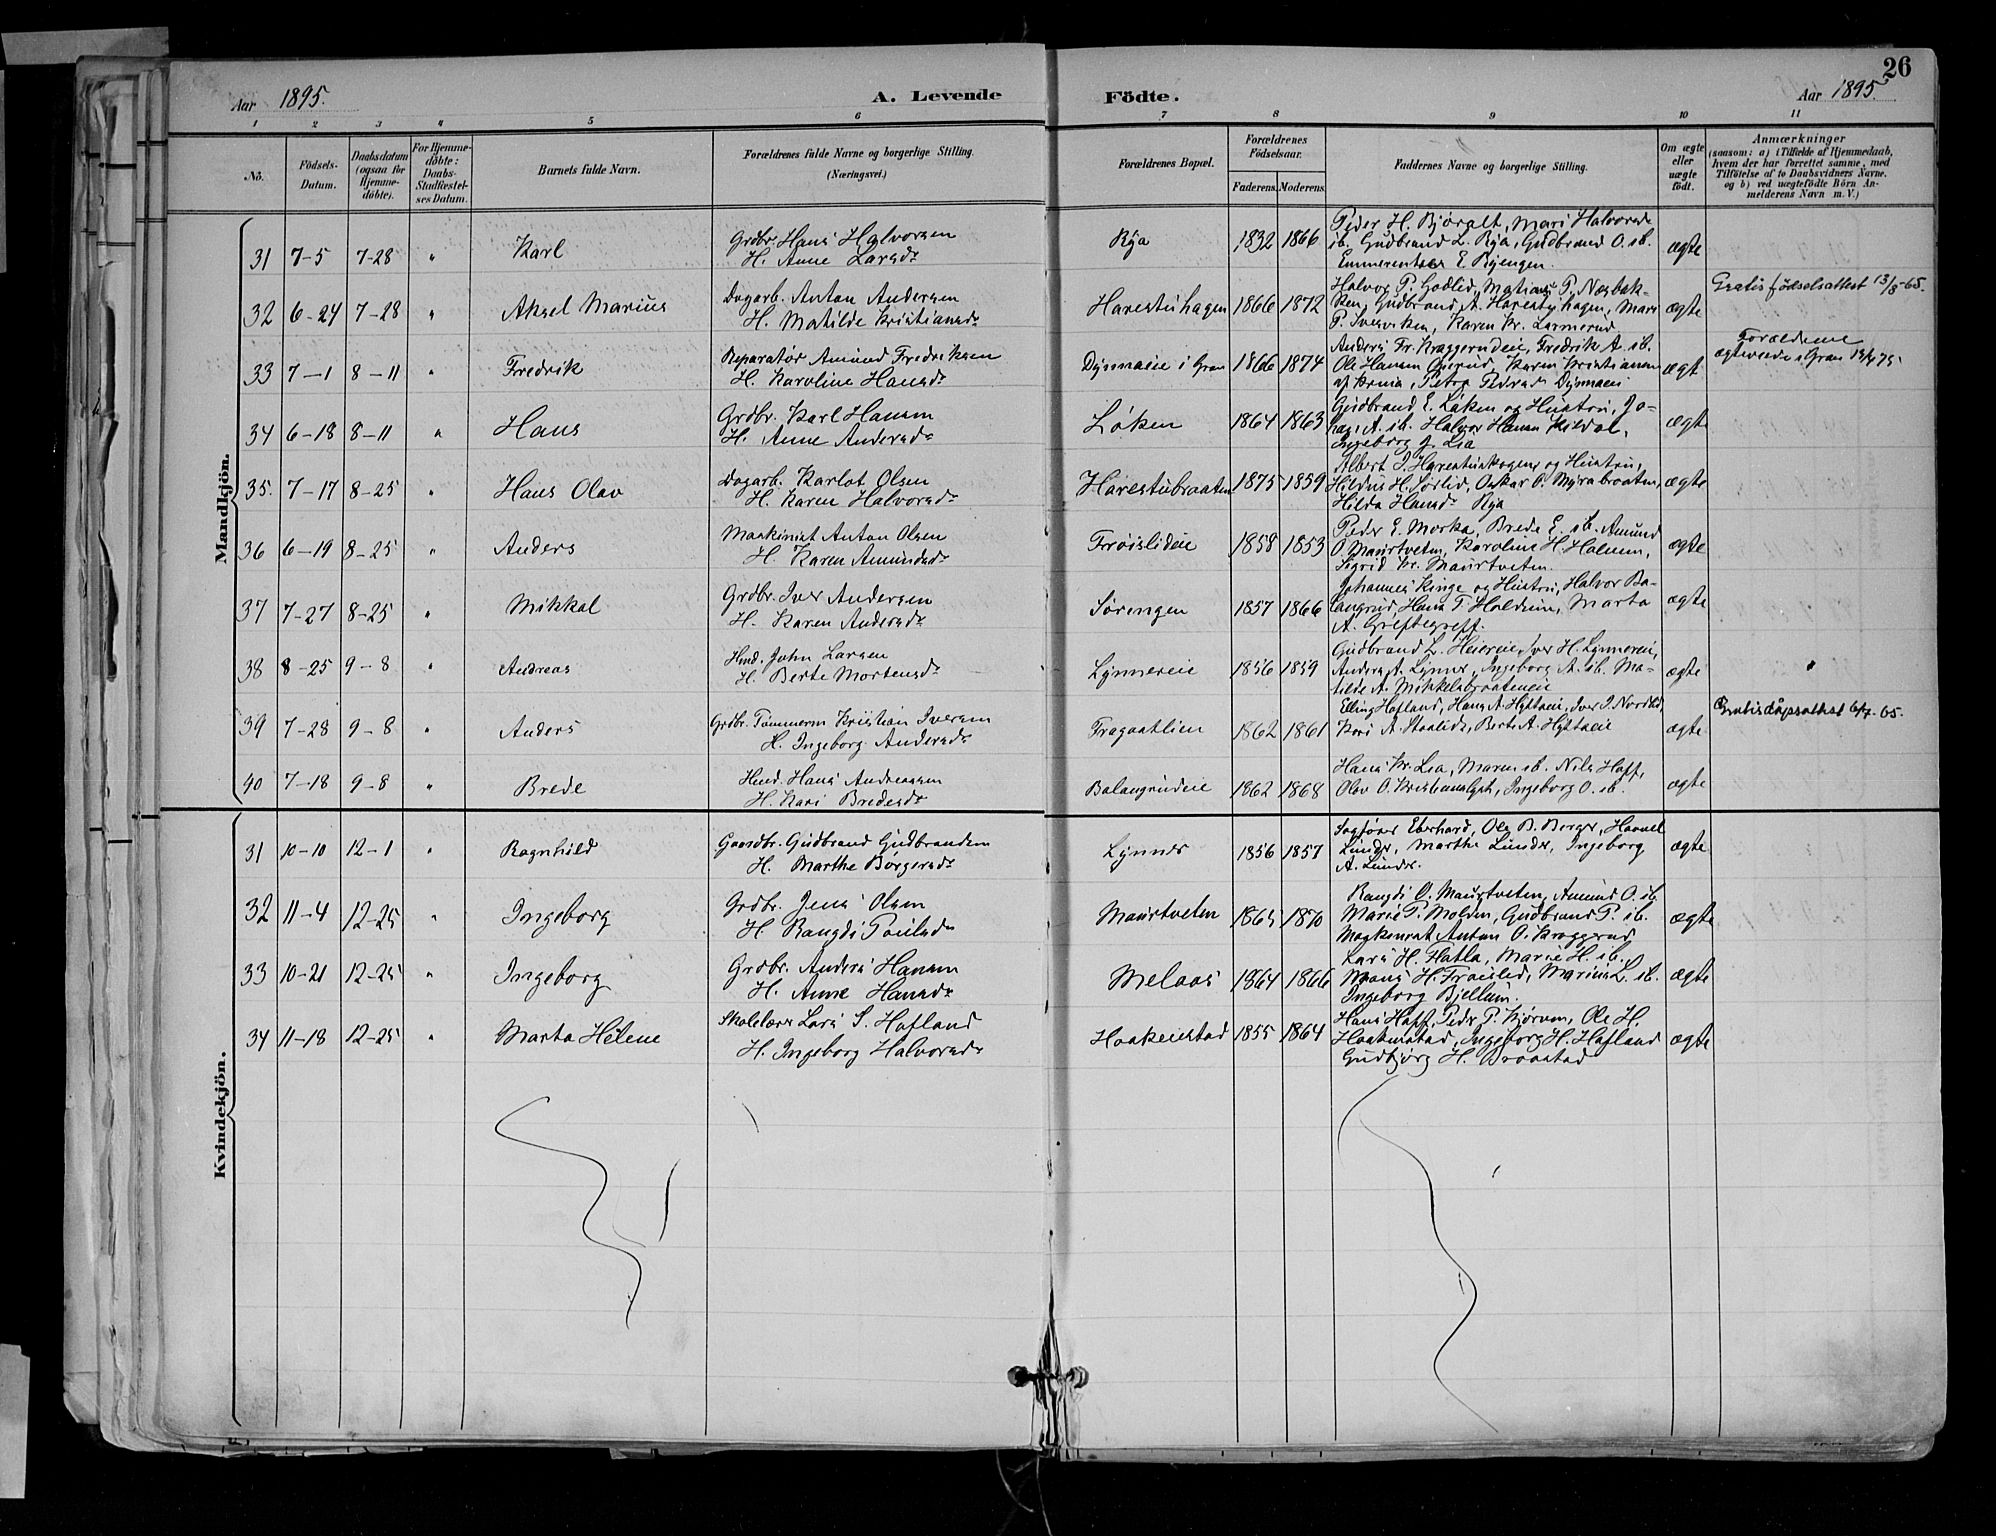 26
Aar 1895.
A. Levende Födte.
Aar 1895.
1 2 3 4 5 6 7 8 9 10 11
No.
Födsels-Datum.
Daabsdatum (ogsaa for Hjemme-döbte).
For Hjemme-döbte: Daabs-Stadfæstel-ses Datum.
Barnets fulde Navn.
Forældrenes fulde Navne og borgerlige Stilling. (Næringsvei.)
Forældrenes Bopæl.
Forældrenes Födselsaar.
Faderens. Moderens.
Faddernes Navne og borgerlige Stilling.
Om ægte eller uægte födt.
Anmærkninger
(saasom: a) i Tilfælde af Hjemmedaab, hvem der har forrettet samme, med Tilföielse af to Daabsvidners Navne, og b) ved uægtefödte Börn An-melderens Navn m. V.)
Mandkjön.
31 7-5 7-28 " Karl
Grdbr. Hans Halvorsen
H. Anne Larsdr
Rya 1832 1866
Peder H. Bjøralt, Mari Halvorsdr
sb. Gudbrand L. Rya, Gudbrand O. sb.
E. Byengen.
ægte
32 6-24 7-28 " Aksel Marius
Dagarb. Anton Andersen
H. Matilde Kristiansdr
Harestuhagen 1866 1872
Halvor P. Godlid, P. Næsbak-
ken, Gudbrand A. Harestuhagen, Mari
P. Svesviken, Karen Kr. Larmerud
ægte
Gratis fødselsattest 13/8-65.
33 7-1 8-11 " Fredrik
Reparatør Amund Fredriksen
H. Karoline Hansdr
Dynnaeie i Gran 1866 1874
Anders Fr. Kraggerudeie, Fredrik A. sb.
Ole Hansen, Karen Kristiansen
Petra Pedersdr Dynnaeie
ægte
Forældrene
34 6-18 8-11 " Hans
Grdbr. Karl Hansen
H. Anne Andersdr
Løken 1864 1863
Gudbrand E. Løken og Hustru, Jo-
han A. sb. Halvor Hansen Kildal,
Ingeborg J. Lia
ægte
35. 7-17 8-25 " Hans Olav
Dagarb. Karlot Olsen
H. Karen Halvorsdr
Harestubraaten 1875 1859
Albert J. Harestuskogen og Hustru,
H. Sørlid, Oskar P. Myrabraaten,
Hilda Hansdr Rya
ægte
36 6-19 8-25 " Anders
Maskinist Anton Olsen
H. Karen Amundsdr
Frøislideie 1858 1853
Peder E. Morka, Brede E. sb. Amund
O. Maurtveten, Karoline H. Holmen,
Sigrid Kr. Maurtveten.
ægte
37 7-27 8-25 " Mikkal
Grdbr. Iver Andersen
H. Karen Andersdr
Sørengen 1857 1866
Johannes Kinge og Hustru, Halvor Ba-
langrud, Hans T. Haldum, Marta
A. Greftegreff.
ægte
38 8-25 9-8 " Andreas
Hmd. John Larsen
H. Berte Mortensdr
Lynnereie 1856 1859
Gudbrand L. Heiereie, Iver H. Lynnereie,
Anders A. Lynner, Ingeborg A. sb. Ma-
tilde A. Mikkelsbraateneie
ægte
39 7-28 9-8 " Anders
Grdbr. Tømmerm Kristian Iversen
H. Ingeborg Andersdr
Fragaatlien 1862 1861
Elling Hofland, Hans A. Hyttaeie, Iver J. Nordlid,
Kari A. Staalid, Berte A. Hyttaeie
ægte
Gratis dåpsattest 6/7-65.
40 7-18 9-8 " Brede
Hmd. Hans Andreassen
H. Kari Bredesdr
Balangrudeie 1862 1868
Hans Kr. Lia, Maren sb. Nils Hoff,
Olav O. Ingeborg O. sb.
ægte
Kvindekjön.
31 10-10 12-1 " Ragnhild
Gaardbr. Gudbrand Gudbrandsen
H. Marthe Børgersdr
Lynner 1856 1857
Sagfører Eberhard, Ole B. Berger,
Lunder, Marthe Lunder, Ingeborg
A. Lunder.
ægte
32 11-4 12-25 " Ingeborg
Grdbr. Jens Olsen
H. Rangdi Paulsdr
Maurtveten 1865 1870
Rangdi O. Maurtveten, Amund O. sb.
Marie P. Molden, Gudbrand P. sb.
Maskinist Anton O. Kraggerud
ægte
33 10-21 12-25 " Ingeborg
Grdbr. Anders Hansen
H. Anne Hansdr
Melaas 1864 1866
Lars H. Flatla, Marie H. sb.
H. Frøislid, L. sb.
Ingeborg Bjellum.
ægte
34 11-18 12-25 " Marta Helene
Skolelærer Lars S. Hofland
H. Ingeborg Halvorsdr
Haakenstad 1855 1864
Hans Hoff, Peder P. Bjørum, Ole H.
Haakenstad, Ingeborg H. Hofland
Gudbjørg H. Braastad
ægte